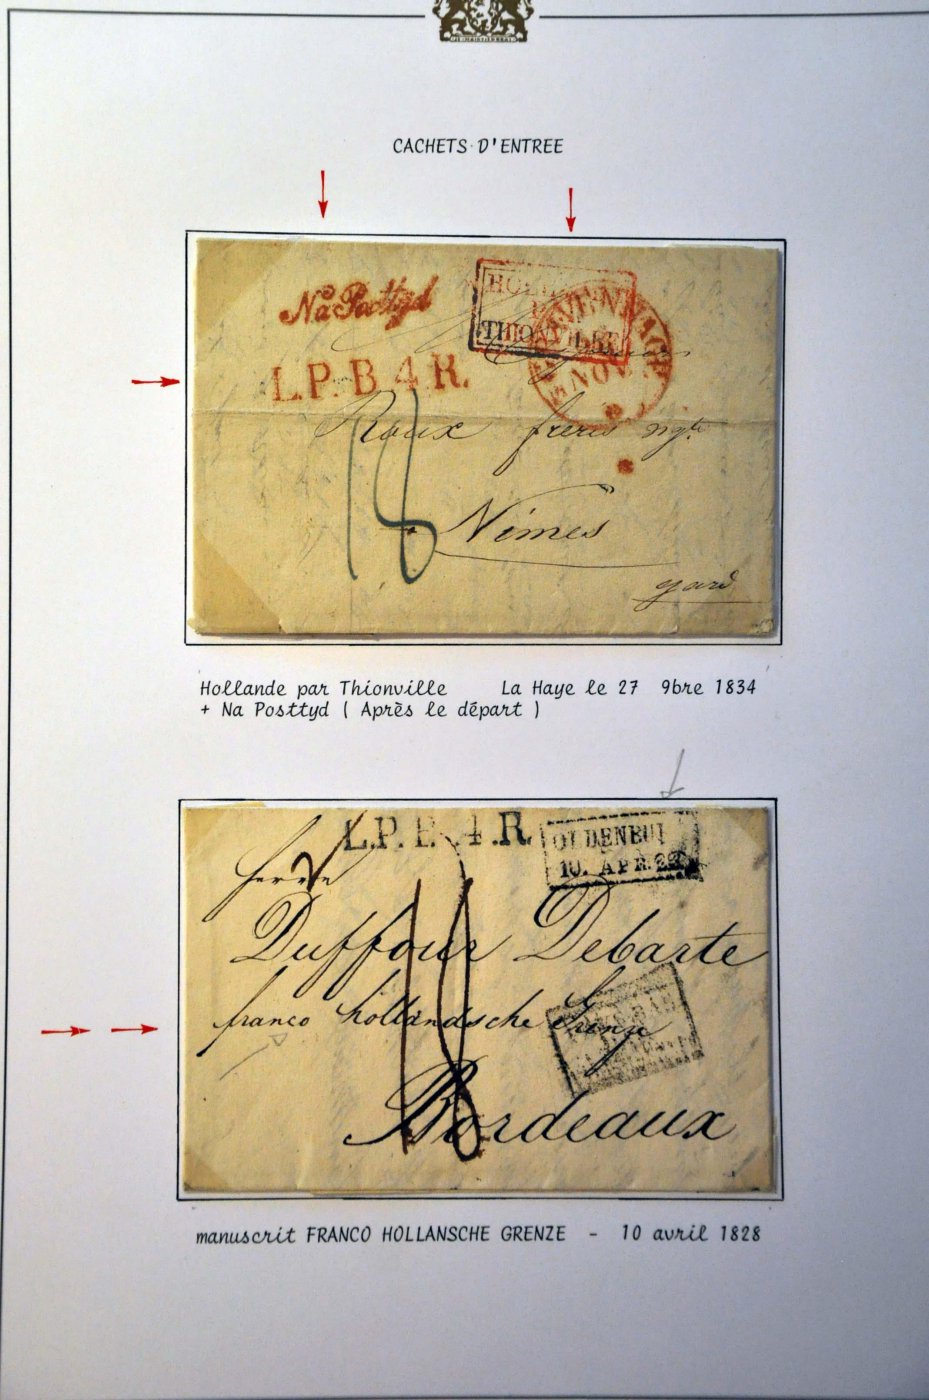 CACHETS D'ENTREE
Na Posttyd
HOLL
THIONVILLE
L.P.B.4.R.
NOV
Roux freres ngts
18
Nimes
gard
Hollande par Thionville La Haye le 27 9bre 1834
+ Na Posttyd ( Après le départ )
L.P.B.4.R.
OLDENBU
10. APR.
Herren
Duffour Debarte
franco hollandsche Grenze
18
Bordeaux
manuscrit FRANCO HOLLANSCHE GRENZE - 10 avril 1828